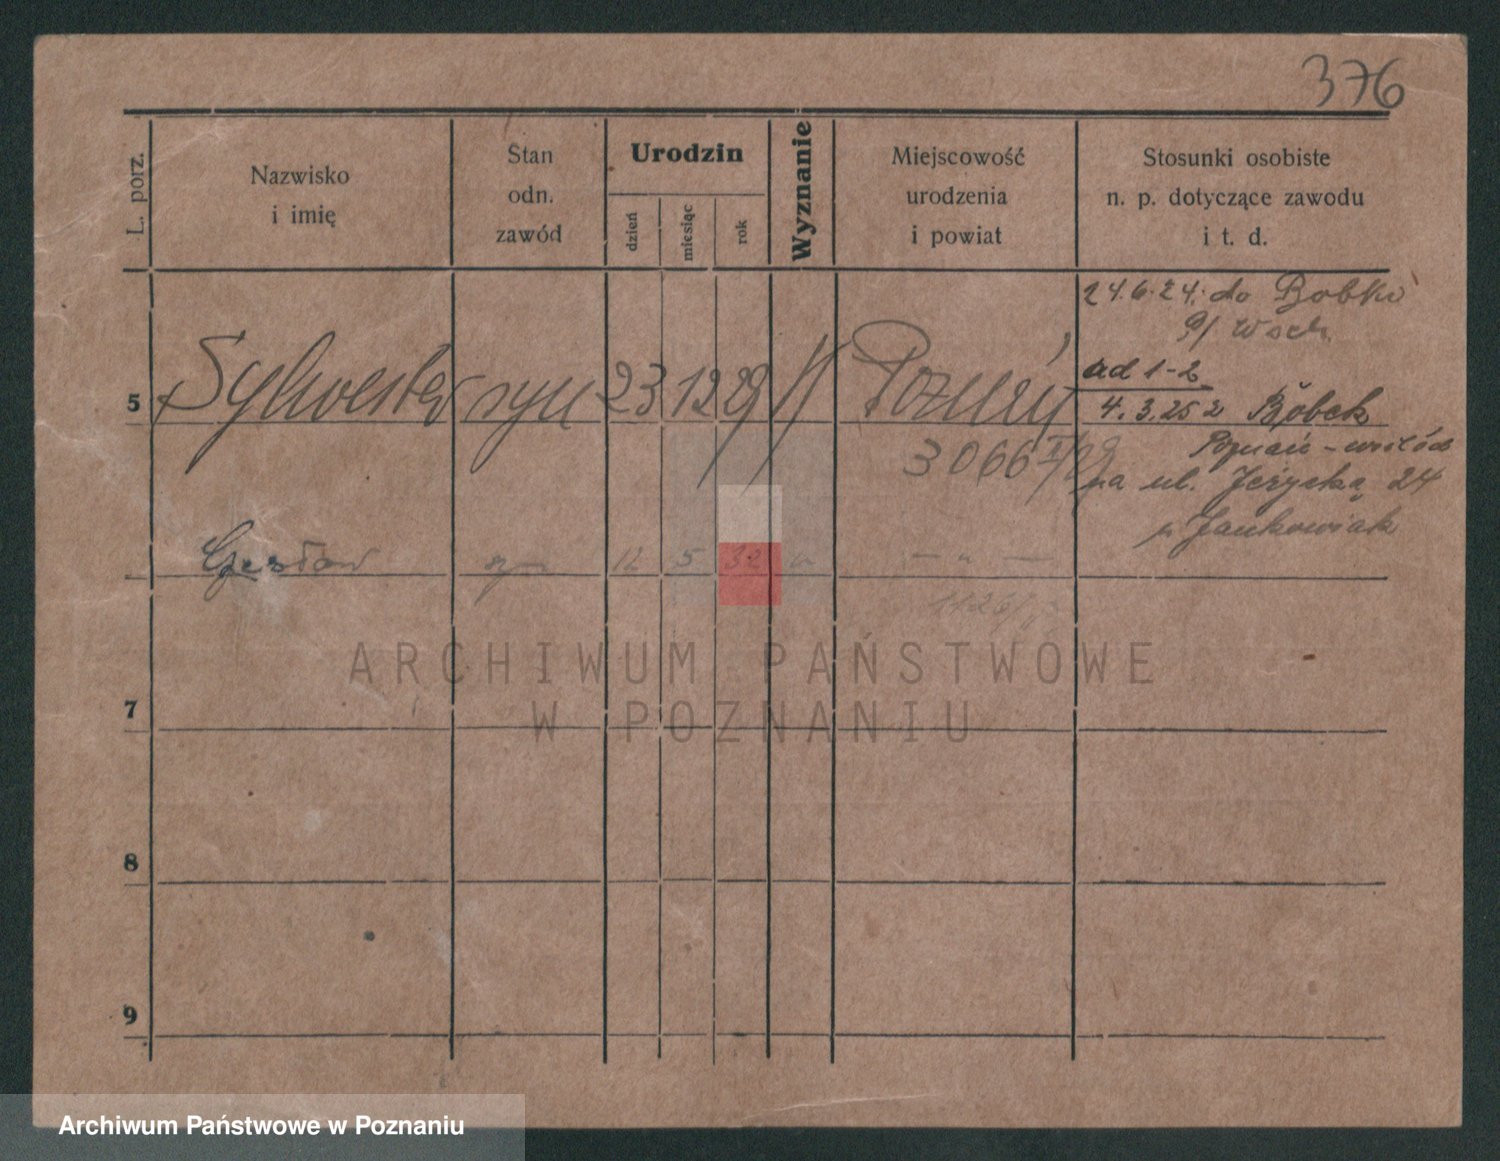 376
L. porz.
Nazwisko
i imię
Stan
odn.
zawód
Urodzin
dzień
miesiąc
rok
Wyznanie
Miejscowość
urodzenia
i powiat
Stosunki osobiste
n. p. dotyczące zawodu
i t. d.
24.6.24. do Bobka
p/ Wsch.
ad 1-2
5 Sylwester syn 23 12 29 " Poznań
4.3.25 z Bobek
3066
Poznań
na ul. Jeżycką 24
p. Jankowiak
Czesław syn 12 5 32 " — " —
7
8
9
ARCHIWUM PAŃSTWOWE
W POZNANIU
Archiwum Państwowe w Poznaniu